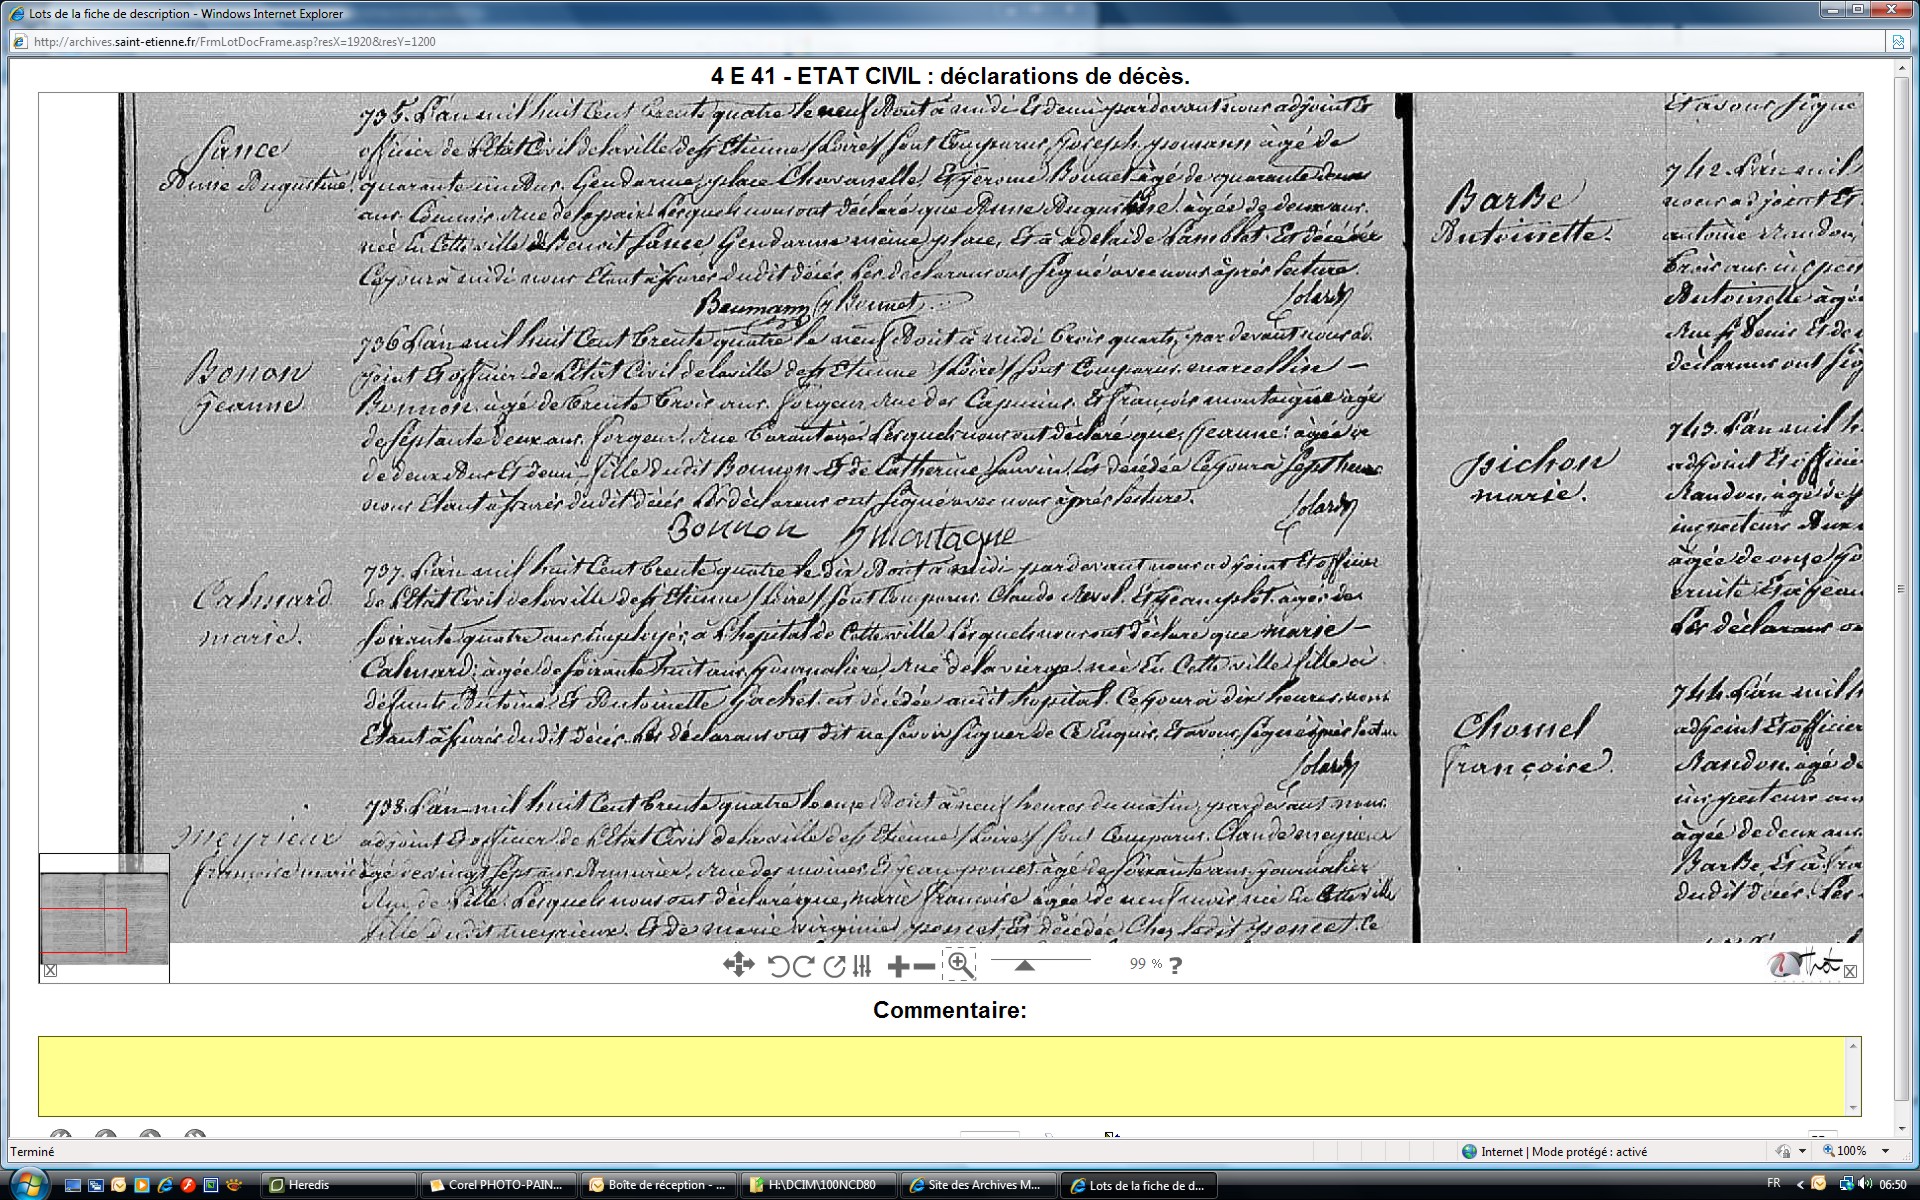 Lots de la fiche de description - Windows Internet Explorer
http://archives.saint-etienne.fr/FrmLotDocFrame.asp?resX=1920&resY=1200
4 E 41 - ETAT CIVIL : déclarations de décès.
Sance
Anne Augustine
735. L'an mil huit Cent trente quatre le neuf Aout à midi Et demi pardevant nous adjoint Et
officier de l'Etat Civil de la ville de St Etienne (Loire) sont Comparus, Joseph âgé de
quarante un Ans. Gendarme, place Chavanelle, Et Jerome Bonnet âgé de quarante deux
ans. Commis, rue de la paix. Lesquels nous ont déclaré que Anne Augustine, âgée de deux ans.
née En Cette ville de Benoit Sance, Gendarme même place, Et d'adelaide Lamblot Est décédée
Ce jour à midi nous Etant assurés dudit décès Les déclarans ont signé avec nous après lecture.
Beumann Bonnet
Solard
Bonon
Jeanne
736 L'an mil huit Cent trente quatre le neuf Aout à midi trois quarts, par devant nous ad.
joint Et officier de l'Etat Civil de la ville de St Etienne (Loire) sont Comparus. marcellin –
Bonnon, âgé de trente trois ans. forgeur, rue des Capucins. Et françois montaigne âgé
de septante deux ans. forgeur. Rue tarantaise. Lesquels nous ont déclaré que Jeanne. âgée
de deux Ans Et demi. fille dudit Bonnon Et de Catherine Est décédée Ce jour à sept heures
nous Etant assurés dudit décès. Les déclarans ont signé avec nous après lecture.
Solard
Bonnon montagne
Calmard
marie.
737. L'an mil huit Cent trente quatre le dix Aout à midi pardevant nous adjoint Et officier
de l'Etat Civil de la ville de St Etienne (Loire) sont Comparus. Claude Revol. Et Jean plot. âgés de
soixante quatre ans Employés à l'hopital de Cette ville Lesquels nous ont déclaré que marie –
Calmard, âgée de soixante huit ans, Journalière, Rue de la vierge. née En Cette ville fille à
défunts Antoine Et Antoinette Gachet. est décédée audit hopital. Ce jour à dix heures. nous
Etant assurés dudit décès. Les déclarans ont dit ne savoir signer de Ce Enquis. Et avons signé après lecture
Solard
Meyrieux
francoise marie
738. L'an mil huit Cent trente quatre le onze Aout à neuf heures du matin, pardevant nous
adjoint Et officier de l'Etat Civil de la ville de St Etienne (Loire) sont Comparus. Claude meyrieux
âgé de vingt sept ans Armurier, rue des moines. Et Jean poncet, âgé de soixante ans. Journalier
Rue de Lesquels nous ont déclaré que, marie francoise âgée de neuf mois née En Cette ville
fille dudit meyrieux. Et de marie virginie, poncet, Est décédée Chez ledit poncet. Ce
Et avons signé
Barbe
Antoinette.
742. L'an mil
nous adjoint Et
antoine Randon,
trois ans. inspect
Antoinette âgée
Rue St Denis Et de
déclarans ont sig
pichon
marie.
743. L'an mil h
adjoint Et officie
Randon. âgé de
inspecteurs Aux
âgée de onze
Les déclarans on
Chomel
françoise.
744. L'an mil h
adjoint Et officier
Randon. âgé de
inspecteurs aux
âgée de deux ans.
Barbe, Et à fra
dudit décès. Les
99 %
?
Commentaire:
Terminé
Internet | Mode protégé : activé
100%
Heredis
Corel PHOTO-PAIN...
Boîte de réception - ...
H:\DCIM\100NCD80
Site des Archives M...
Lots de la fiche de d...
FR
06:50